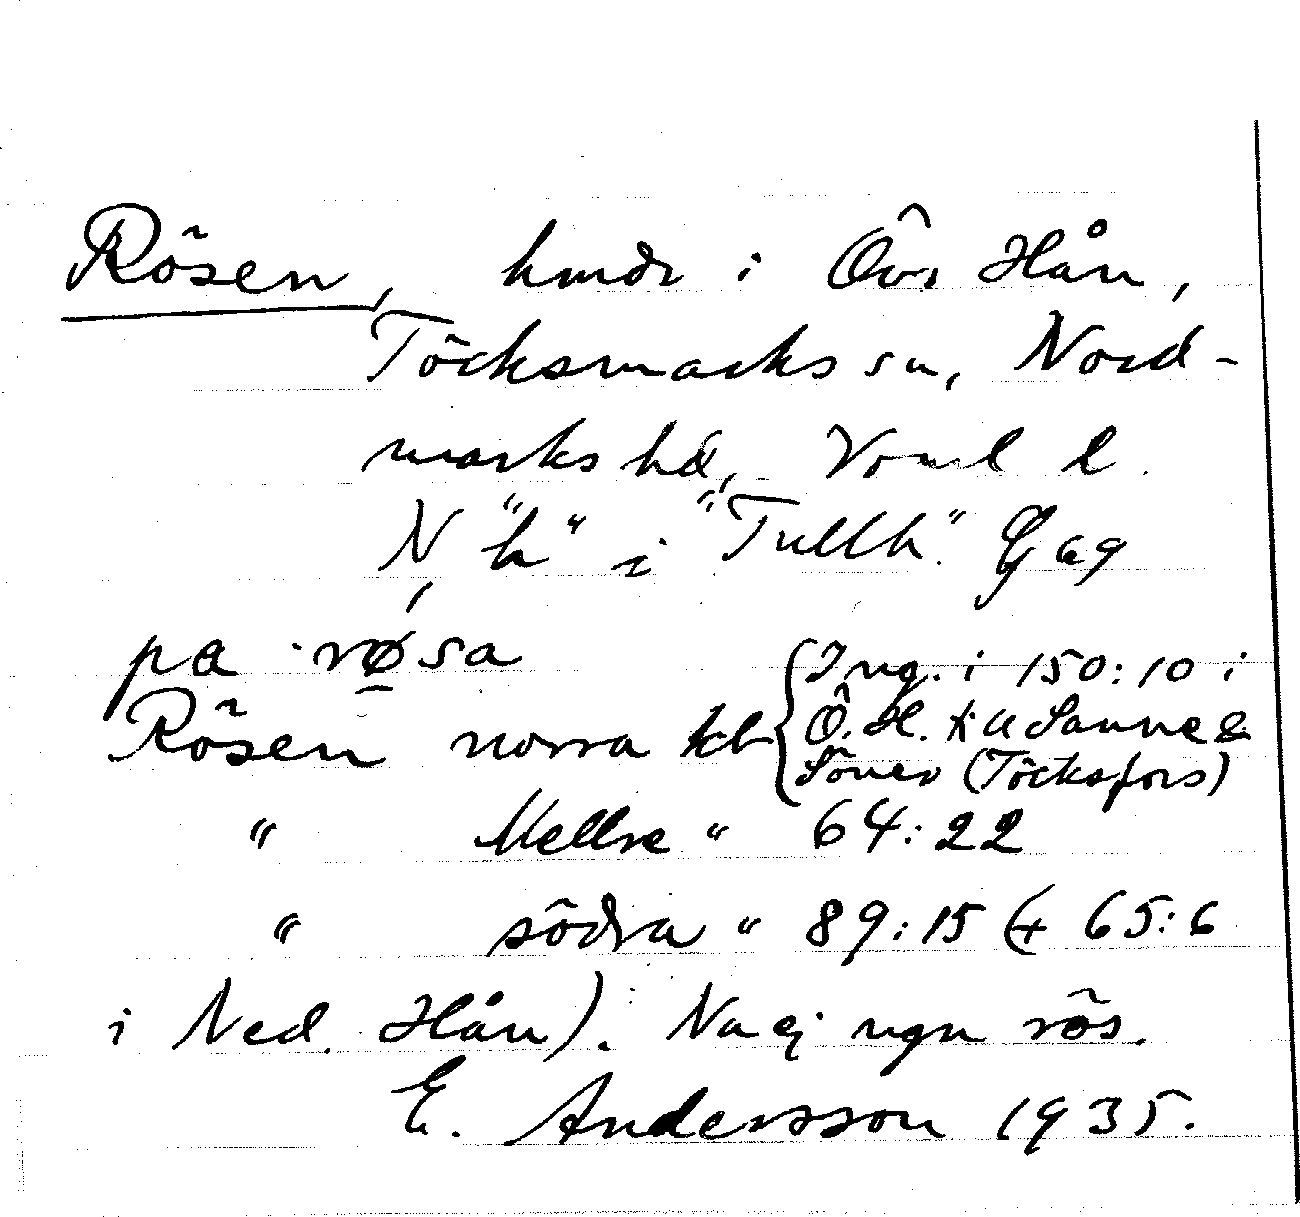 Rösen, hmdr i Öv. Hån,
Töcksmarks sn, Nord-
marks hd, Vrml l.
N "h" i "Tullh." Gag
pa rø̱sa
Rösen norra hd { Ing. i 150:10 i
Ö. H. t. u Sanne &
Söner (Töcksfors)
" Mellre " 64:22
" södra " 89:15 (+ 65:6
i Ned. Hån). Nu ej ngn rös.
E. Andersson 1935.